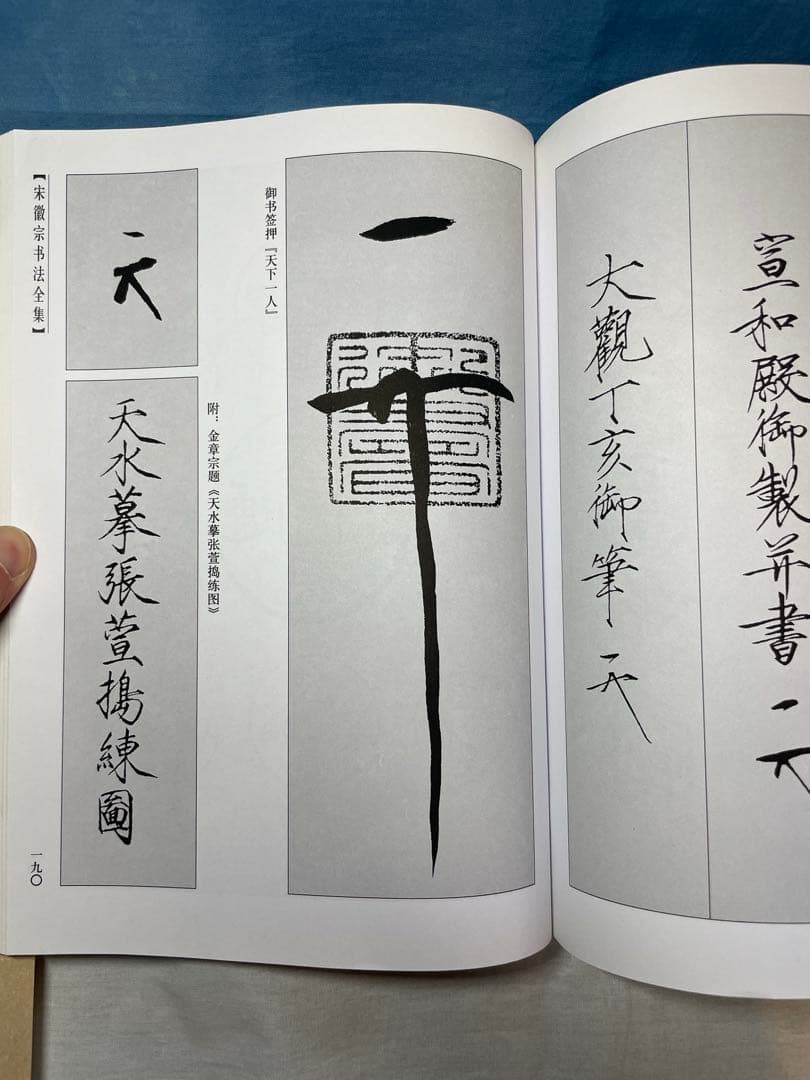 宣和殿御製并書
大觀丁亥御筆
御书签押『天下一人』
附：金章宗题《天水摹张萱捣练图》
天水摹張萱搗練圖
【宋徽宗书法全集】
一九〇